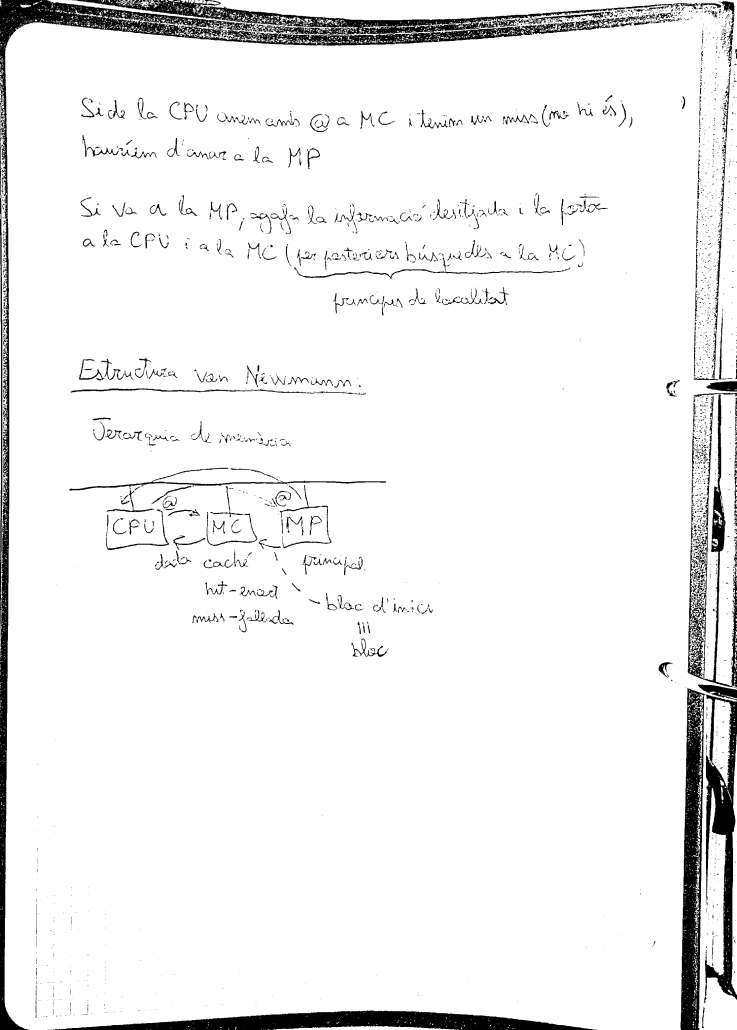 Si de la CPU anem amb @ a MC i tenim un miss (no hi és),
hauríem d'anar a la MP
Si va a la MP, agafa la informació desitjada i la porta
a la CPU i a la MC (per posteriors búsquedes a la MC)
principis de localitat
Estructura von Newmann:
Jerarquia de memòria
@ @
CPU MC MP
data caché principal
hit-encert
miss-fallada
bloc d'inici
≡
bloc